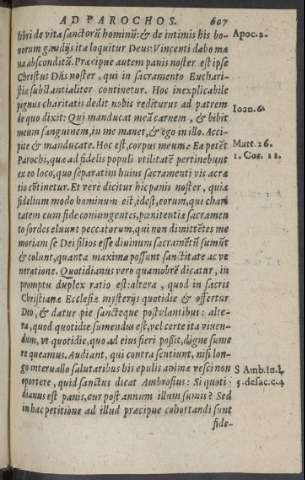 AD PAROCHOS. 607
libri de vita sanctorū hominū: & de intimis his bo-
norum gaudijs ita loquitur Deus: Vincenti dabo ma
na absconditū. Præcipue autem panis noster est ipse
Christus Dñs noster, qui in sacramento Euchari-
stiæ substantialiter continetur. Hoc inexplicabile
pignus charitatis dedit nobis rediturus ad patrem
de quo dixit: Qui manducat meā carnem, & bibit
meum sanguinem, in me manet, & ego in illo. Acci-
pite & manducate. Hoc est, corpus meum. Ea petēt
Parochi, quæ ad fidelis populi vtilitatē pertinebunt
ex eo loco, quo separatim huius sacramenti vis ac ra
tio cōtinetur. Et verè dicitur hic panis noster, quia
fidelium modo hominum est, idest, eorum, qui chari
tatem cum fide coniungentes, pœnitentiæ sacramen
to sordes eluunt peccatorum, qui non dimittētes me
moriam se Dei filios esse diuinum sacramētū sumūt
& colunt, quanta maxima possunt sanctitate ac ve
neratione. Quotidianus vero quamobrē dicatur, in
promptu duplex ratio est: altera, quod in sacris
Christianæ Ecclesiæ mysterijs quotidie & offertur
Deo, & datur pie sancteque postulantibus: alte-
ra, quod quotidie sumendus est, vel certe ita viuen-
dum, vt quotidie, quo ad eius fieri possit, digne sume
re queamus. Audiant, qui contra sentiunt, nisi lon-
go interuallo salutaribus his epulis animæ vesci non
oportere, quid sanctus dicat Ambrosius: Si quoti-
dianus est panis, cur post annum illum sumis? Sed
in hac petitione ad illud præcipue cohortandi sunt
fide-
Apoc. 2.
Ioan. 6.
Matt. 26.
1. Cor. 11.
S Amb. in. l.
5. de sac. c. 4